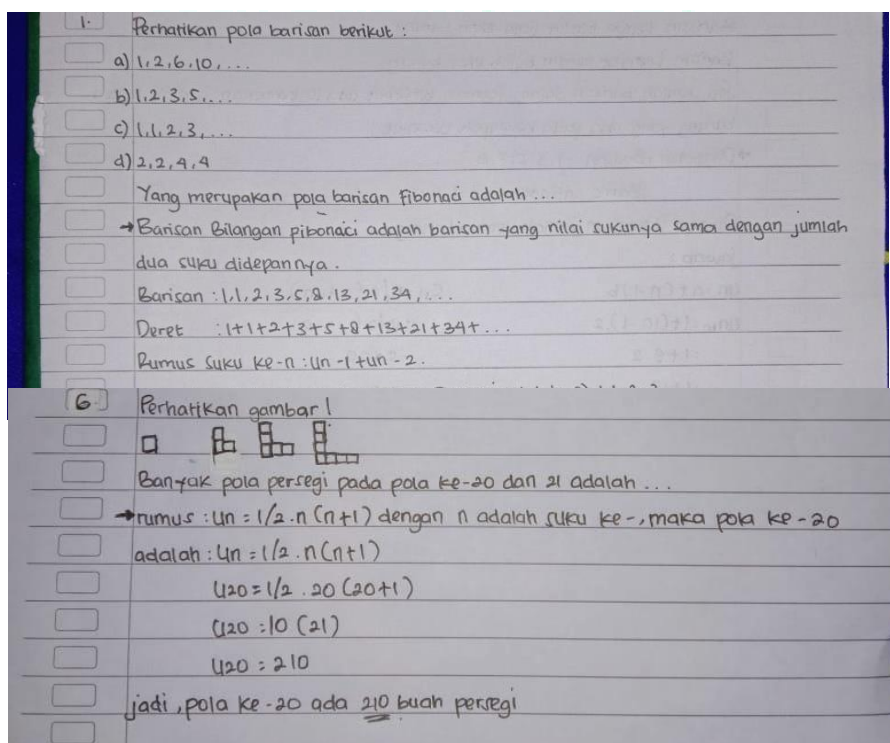 1. Perhatikan pola barisan berikut :
a) 1, 2, 6, 10, ...
b) 1, 2, 3, 5, ...
c) 1, 1, 2, 3, ...
d) 2, 2, 4, 4
Yang merupakan pola barisan Fibonaci adalah ...
→ Barisan Bilangan pibonaci adalah barisan yang nilai sukunya sama dengan jumlah
dua suku didepannya.
Barisan : 1, 1, 2, 3, 5, 8, 13, 21, 34, ...
Deret : 1+1+2+3+5+8+13+21+34+ ...
Rumus suku ke-n : Un -1 + un - 2.
6. Perhatikan gambar !
Banyak pola persegi pada pola ke-20 dan 21 adalah ...
→ rumus : Un = 1/2 . n (n+1) dengan n adalah suku ke-, maka pola ke-20
adalah : Un = 1/2 . n (n+1)
U20 = 1/2 . 20 (20+1)
U20 = 10 (21)
U20 = 210
jadi, pola ke-20 ada 210 buah persegi